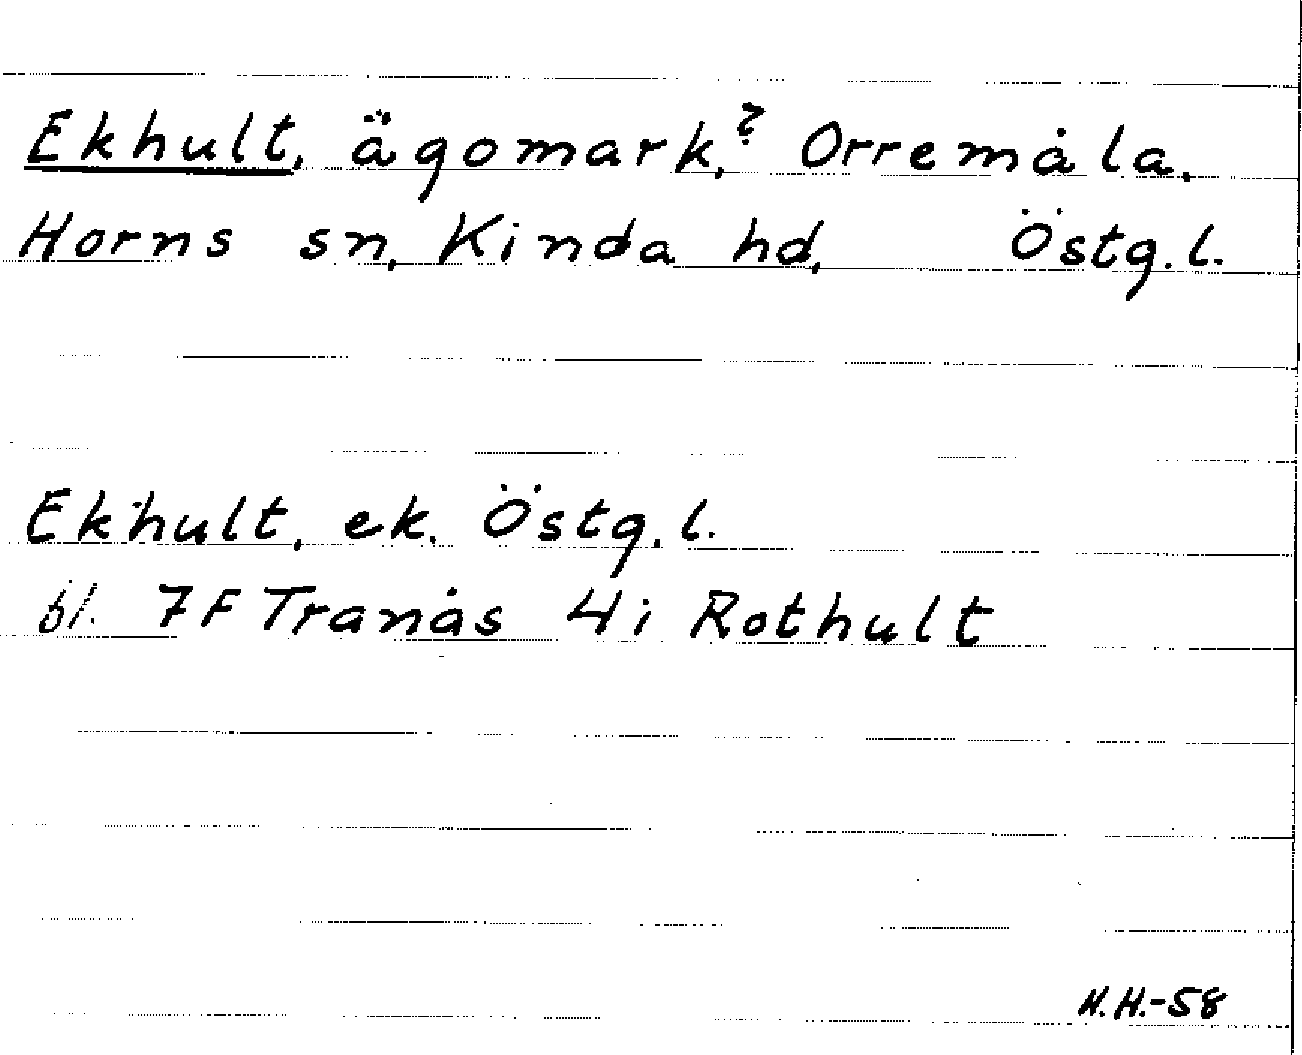 Ekhult, ägomark,? Orremåla.
Horns sn, Kinda hd, Östg. l.
Ekhult, ek. Östg. l.
bl. 7F Tranås 4i Rothult
N.H.-58